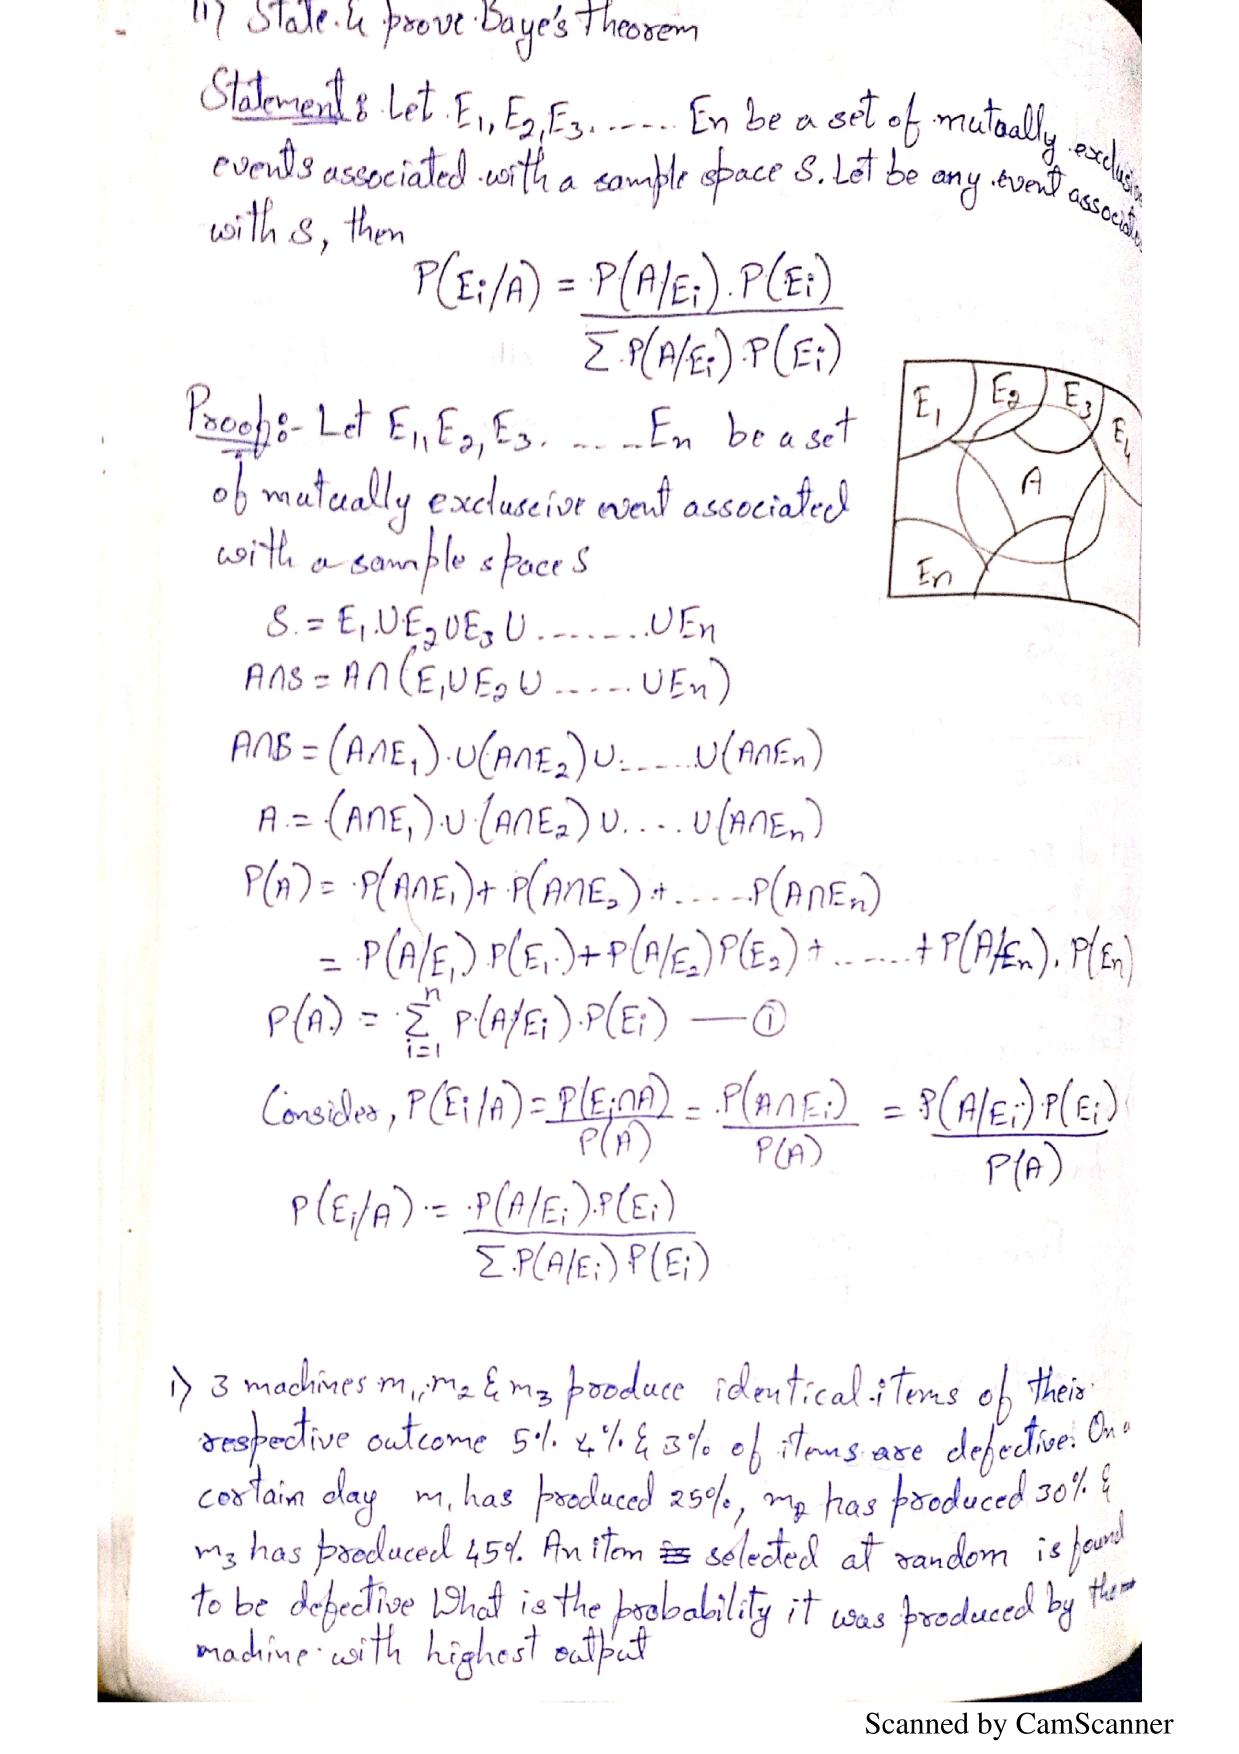 11) State & prove Baye's Theorem
Statement : Let E₁, E₂, E₃. ...... En be a set of mutually exclusive
events associated with a sample space S. Let be any event associated
with S, then
P(Ei/A) = P(A/Ei). P(Ei)
∑ P(A/Ei) . P(Ei)
Proof:- Let E₁, E₂, E₃. ..... En be a set
of mutually excluseive event associated
with a sample space S
E₁ E₂ E₃ E₄
A
En
S = E₁ ∪ E₂ ∪ E₃ ∪ ........ ∪ En
A∩S = A∩(E₁∪E₂ ∪ ...... ∪En)
A∩B = (A∩E₁) ∪ (A∩E₂) ∪ ...... ∪(A∩En)
A = (A∩E₁) ∪ (A∩E₂) ∪ .... ∪(A∩En)
P(A) = P(A∩E₁) + P(A∩E₂) + ...... P(A∩En)
= P(A/E₁) P(E₁) + P(A/E₂) P(E₂) + ....... + P(A/En). P(En)
P(A) = ∑ⁿᵢ₌₁ P(A/Ei) . P(Ei) — ①
Consider, P(Ei/A) = P(Ei∩A) / P(A) = P(A∩Ei) / P(A) = P(A/Ei) P(Ei) / P(A)
P(Ei/A) = P(A/Ei) . P(Ei)
∑ P(A/Ei) P(Ei)
i) 3 machines m₁, m₂ & m₃ produce identical items of their
respective outcome 5% 4% & 3% of items are defective. On a
certain day m₁ has produced 25%, m₂ has produced 30% &
m₃ has produced 45%. An item selected at random is found
to be defective What is the probability it was produced by the
machine with highest output
Scanned by CamScanner